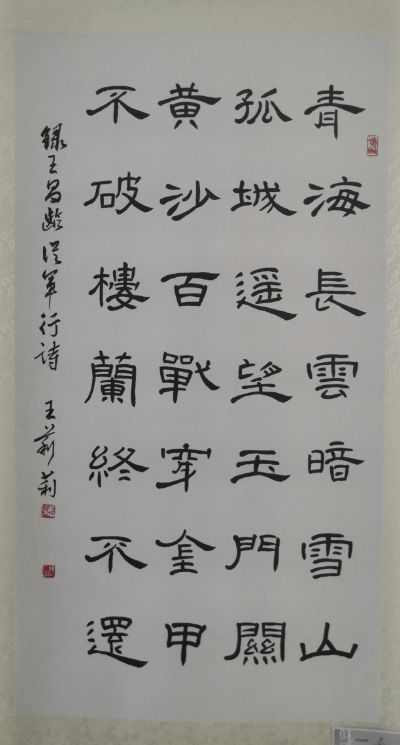 青海長雲暗雪山
孤城遥望玉門關
黄沙百戰穿金甲
不破樓蘭終不還
録王昌齡從軍行詩 王莉